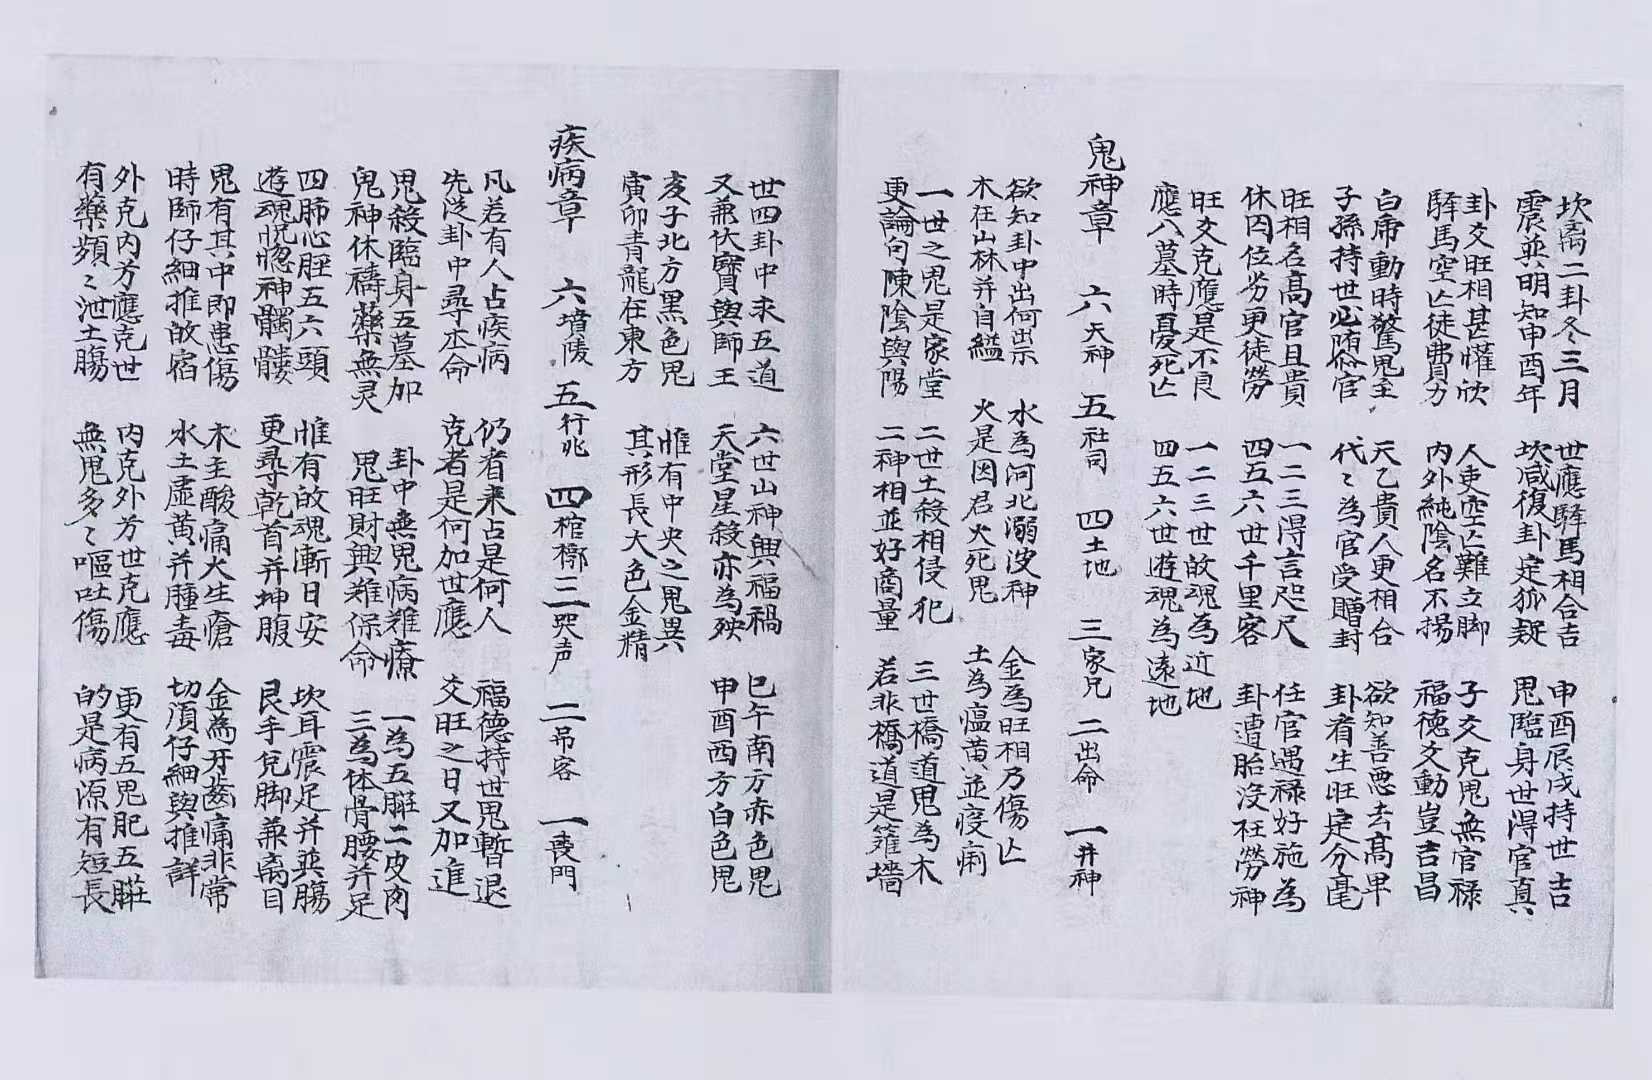 坎离二卦冬三月　世應驛馬相合吉　申酉辰戌持世吉
震巽明知申酉年　坎咸復卦定狐疑　鬼臨身世得官真
卦爻旺相甚懽欣　人吏空亡難立脚　子爻克鬼無官禄
驛馬空亡徒費力　内外純陰名不揚　福德爻動豈吉昌
白虎動時驚鬼主　天乙貴人更相合　欲知善惡去高畀
子孫持世必陏官　代〻為官受贈封　卦看生旺定分毫
旺相名高官且貴　一二三得言咫尺　任官遇禄好施為
休囚位劣更徒勞　四五六世千里客　卦遭胎没枉勞神
旺爻克應是不良　一二三世故魂為近地
應入墓時憂死亡　四五六世遊魂為遠地
鬼神章　六天神　五社司　四土地　三家兄　二出命　一井神
欲知卦中出何示　水為河北溺没神　金為旺相乃傷亡
木在山林并自縊　火是因君火死鬼　土為瘟黄並疫痢
一世之鬼是家堂　二世土殺相侵犯　三世橋道鬼為木
更論勾陳陰與陽　二神相並好商量　若非橋道是籬墻
世四卦中求五道　六世山神興福禍　巳午南方赤色鬼
又兼伏寳與師王　天堂星殺亦為殃　申酉西方白色鬼
亥子北方黑色鬼　惟有中央之鬼異
寅卯青龍在東方　其形長大色金精
疾病章　六墳陵　五行兆　四棺槨　三哭声　二吊客　一喪門
凡若有人占疾病　仍者来占是何人　福德持世鬼暫退
先从卦中尋本命　克者是何加世應　爻旺之日又加進
鬼殺臨身五墓加　卦中無鬼病难療　一為五脏二皮肉
鬼神休禱藥無灵　鬼旺財興難保命　三為体骨腰并足
四肺心脛五六頭　惟有故魂漸日安　坎耳震足并巽腸
遊魂恍惚神髑髏　更尋乾首并坤腹　艮手兌脚兼离目
鬼有其中即患傷　木主酸痛火生瘡　金為牙齒痛非常
時師仔細推敀宿　水土虚黄并腫毒　切湏仔細與推詳
外克内方應克世　内克外方世克應　更有五鬼肥五脏
有藥頻〻泄土腸　無鬼多〻嘔吐傷　的是病源有短長